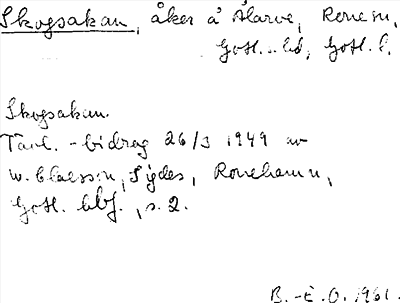 Skogsakan, åker å Ålarve, Rone sn,
Gotl. s. hd, Gotl. l.
Skogsakan.
Tävl.-bidrag 26/3 1949 av
W. Claesson, Sigdes, Ronehamn,
Gotl. , s. 2.
B.-E. O. 1961.